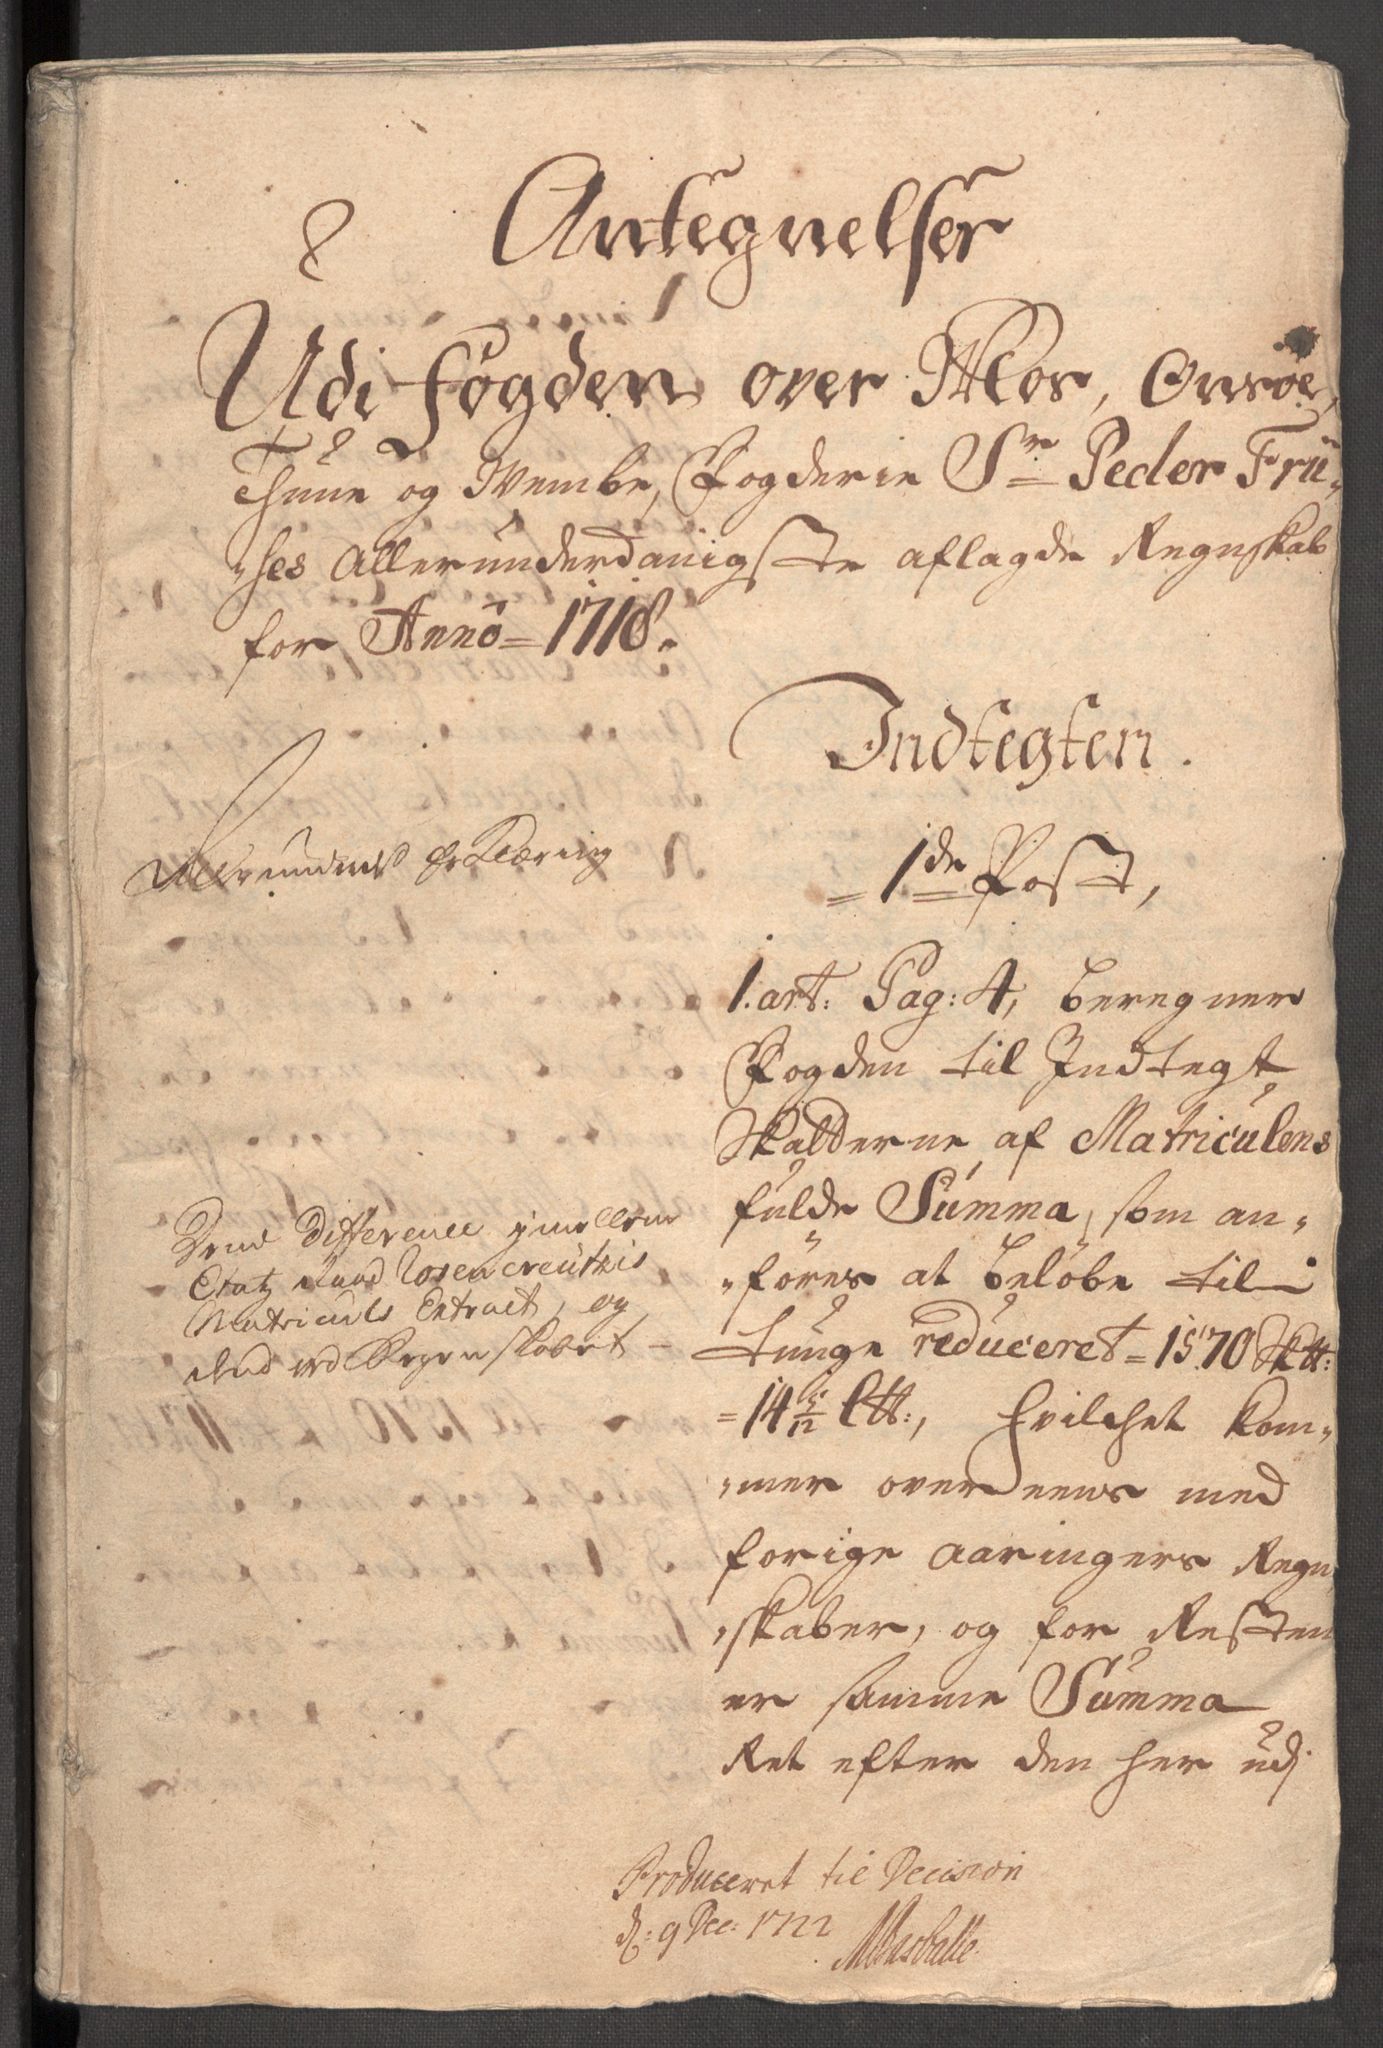 8
Antegnelser
Udi fogden over Mos, Onsöe,
Thune og Wembe, Fogderie Sr Peder Frü-
ses Allerunderdanigste aflagde Regnskab
for Anno 1718.
Indtegten.
Allerunderst Erklæring
1de Post,
1. art: Pag: 4, beregner
Fogden til Indtegt
Skatterne af Matriculens
fulde Summa, som an-
föres at belöbe til
tunge reduceret = 1570 Sktt:
= 14 5/12 Ltt:, hvilchet kom-
mer overeens med
forige aaringers Regn-
skaber, og for Resten
er samme Summa
Ret efter den her udj
Dend Difference imellem
Etatz Raad Rosencreutzis
Matriculs Extract, og
dend ved Regenskabet
Produceret til Decision
d: 9 Dec: 1722